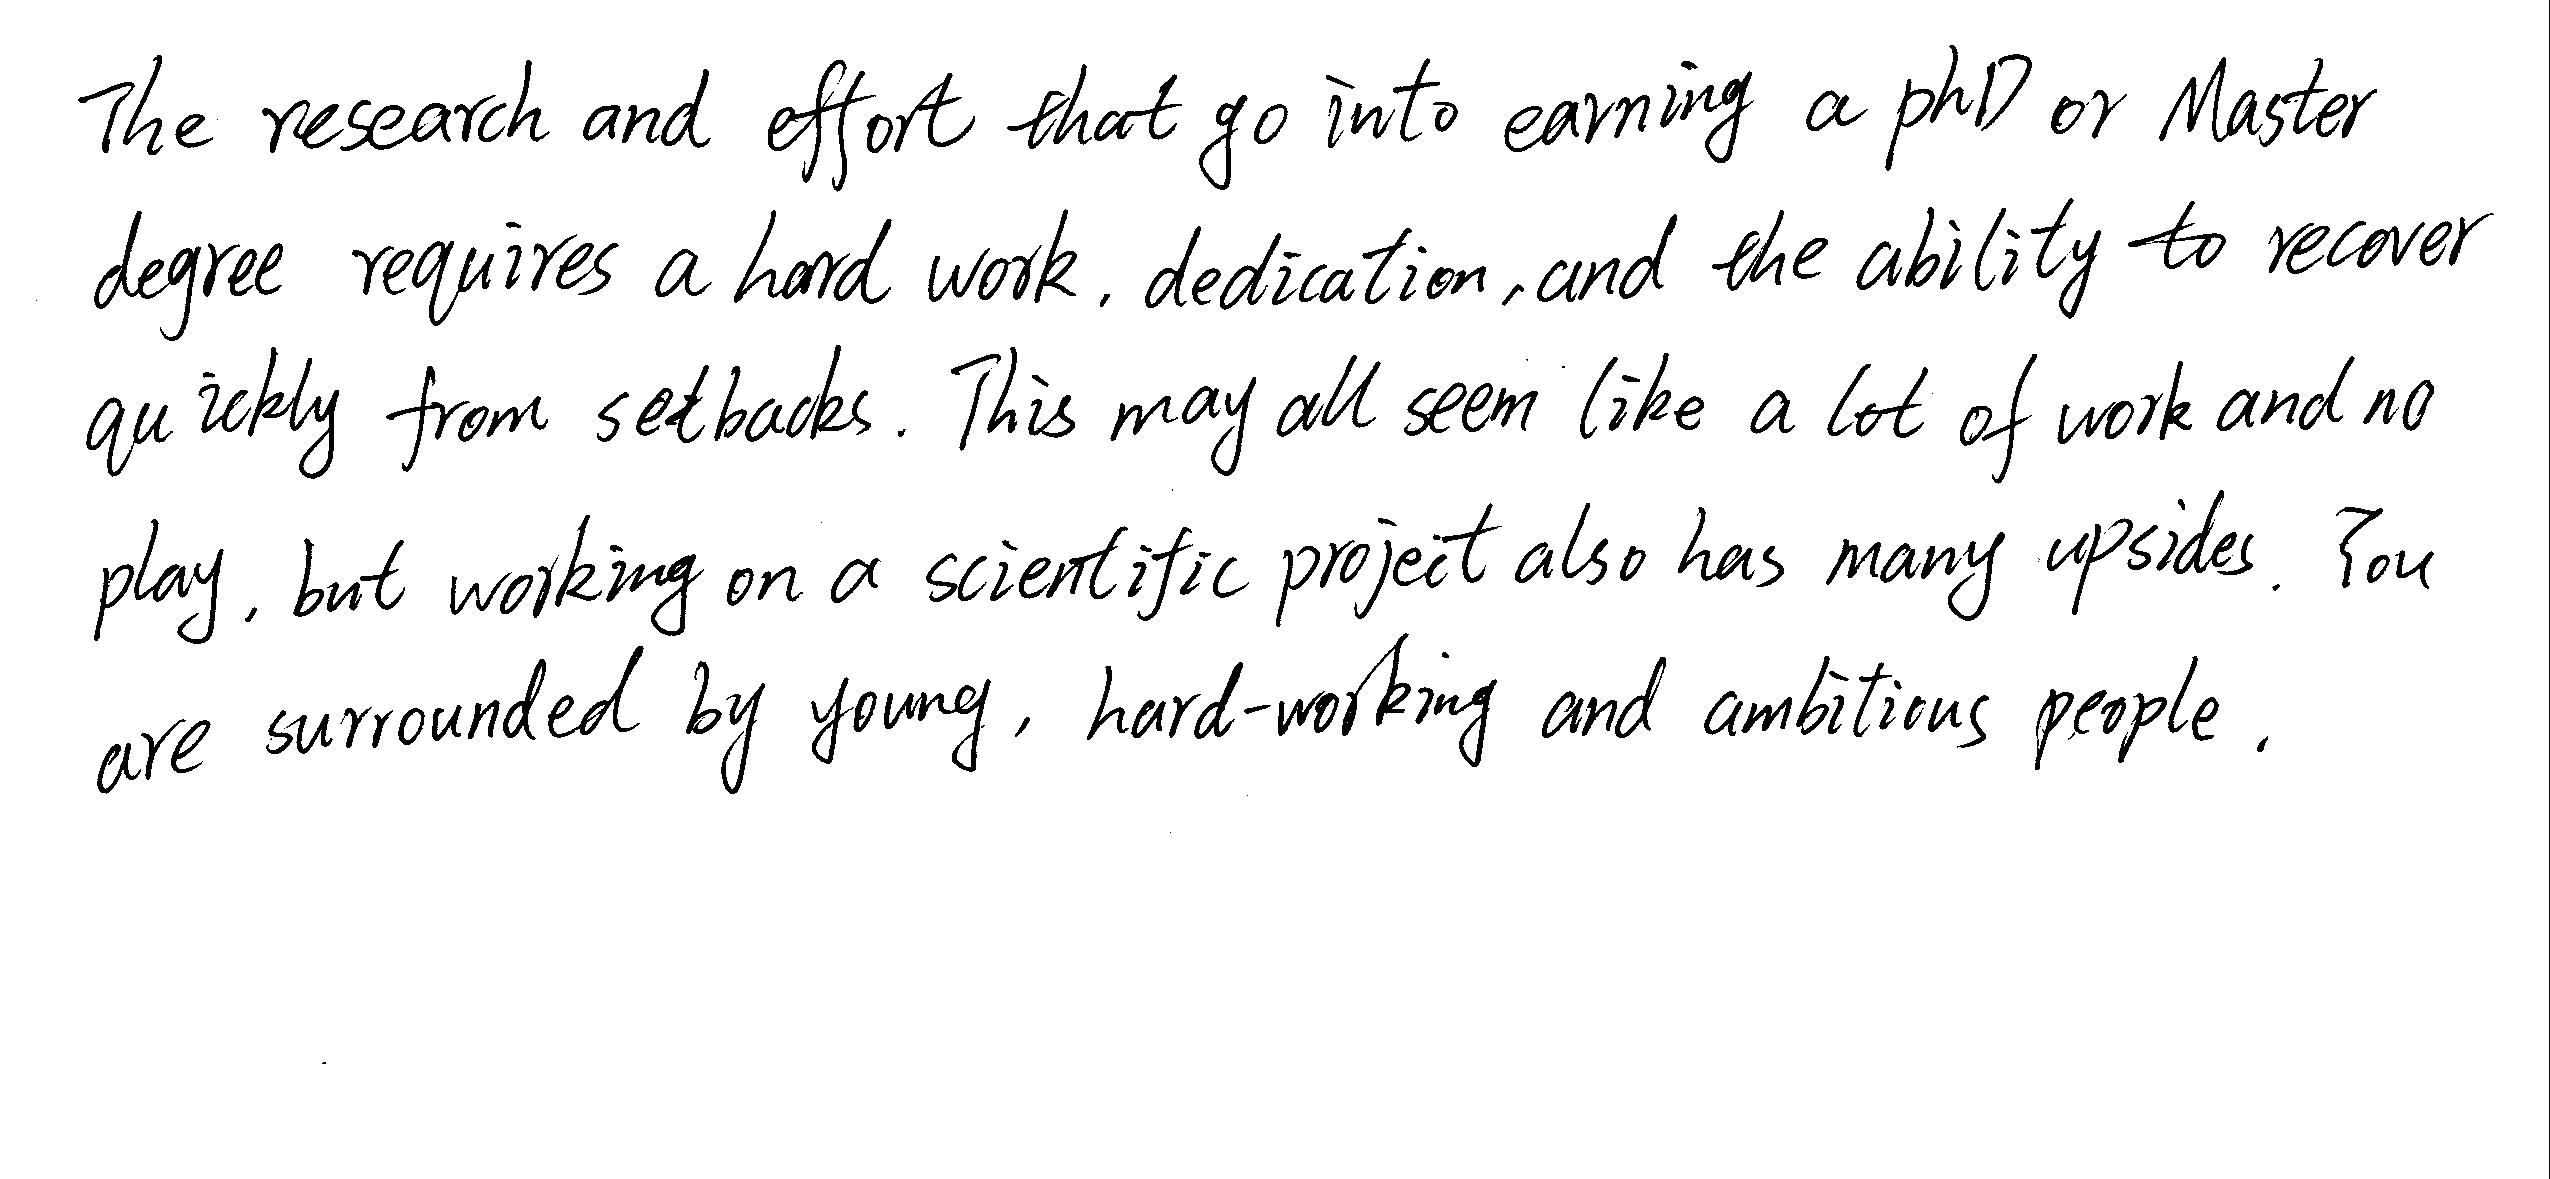 The research and effort that go into earning a phD or Master
degree requires a hard work, dedication, and the ability to recover
quickly from setbacks. This may all seem like a lot of work and no
play, but working on a scientific project also has many upsides. You
are surrounded by young, hard-working and ambitious people.